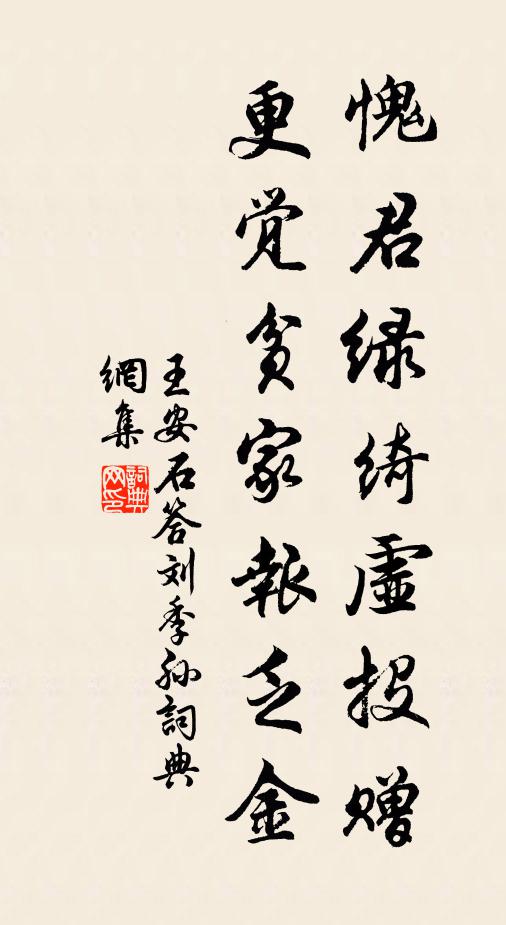 愧君绿绮虚投赠
更觉贫家報乏金
王安石答刘季孙詞典
網集
詞典网印